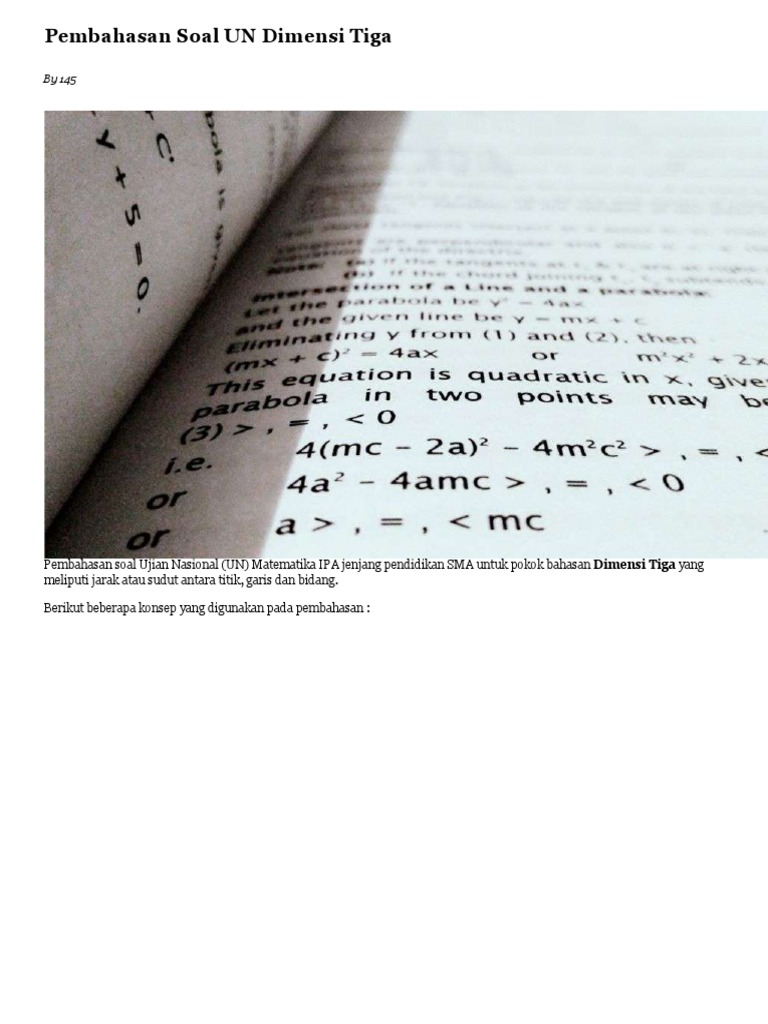 Pembahasan Soal UN Dimensi Tiga
By 145
C
y + 5 = 0.
Note:
(a) If the tangents at
(b) If the chord joining
Intersection of a Line and a parabola:
Let the parabola be y² = 4ax
and the given line be y = mx + c
Eliminating y from (1) and (2), then
(mx + c)² = 4ax or m²x² + 2x
This equation is quadratic in x, give
parabola in two points may be
(3) > , = , < 0
i.e. 4(mc – 2a)² – 4m²c² > , = , <
or 4a² – 4amc > , = , < 0
or a > , = , < mc
Pembahasan soal Ujian Nasional (UN) Matematika IPA jenjang pendidikan SMA untuk pokok bahasan Dimensi Tiga yang
meliputi jarak atau sudut antara titik, garis dan bidang.
Berikut beberapa konsep yang digunakan pada pembahasan :